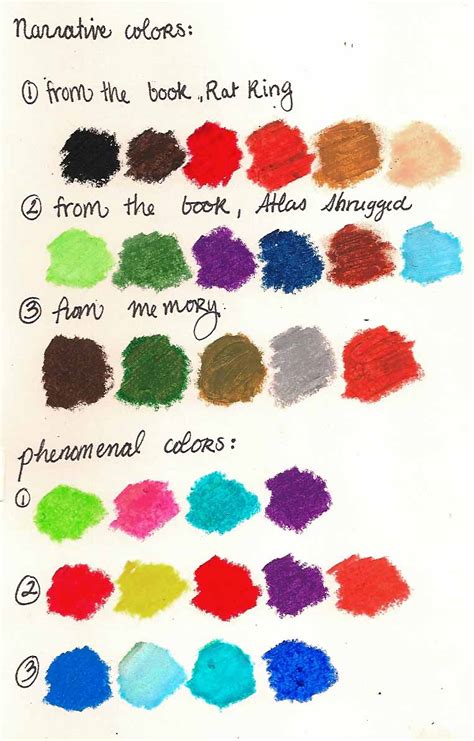 Narrative colors:
① from the book, Rat King
② from the book, Atlas Shrugged
③ from memory.
phenomenal colors:
①
②
③